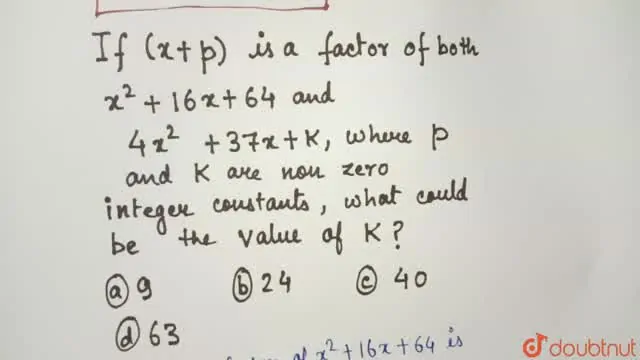 If (x+p) is a factor of both
x² + 16x + 64 and
4x² + 37x + K, where p
and K are non zero
integer constants, what could
be the value of K?
ⓐ 9 ⓑ 24 ⓒ 40
ⓓ 63
of x² + 16x + 64 is
doubtnut